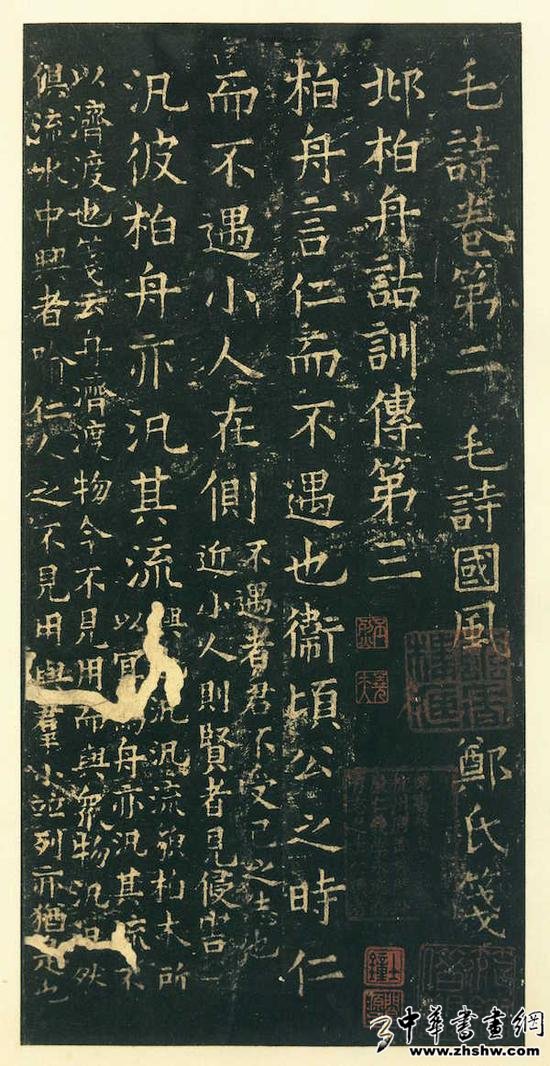 毛詩卷第二 毛詩國風 鄭氏箋
邶柏舟詁訓傳第三
柏舟言仁而不遇也衞頃公之時仁
而不遇小人在側
不遇者君不受己之志也
近小人則賢者見侵害
汎彼柏舟亦汎其流
興汎汎流皃柏木所
以宜為舟亦汎其流不
以濟渡也箋云舟濟渡物今不見用而與眾物汎汎然
俱流水中興者喻仁人之不見用與羣小並列亦猶是也
中華書畫網
www.zhshw.com